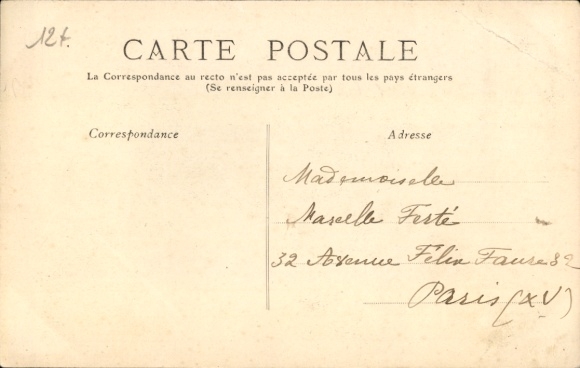 12f.
CARTE POSTALE
La Correspondance au recto n'est pas acceptée par tous les pays étrangers
(Se renseigner à la Poste)
Correspondance
Adresse
Mademoiselle
Marcelle Ferté
32 Avenue Félix Faure 32
Paris (XV)